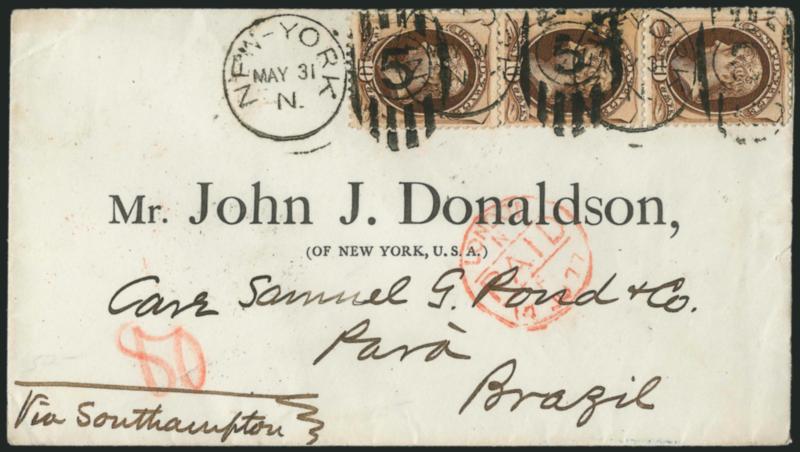 NEW-YORK
MAY 31
N.
5
5
Mr. John J. Donaldson,
(OF NEW YORK, U.S.A.)
PAID
Care Samuel G. Pond & Co.
Pará
Brazil
80
Via Southampton